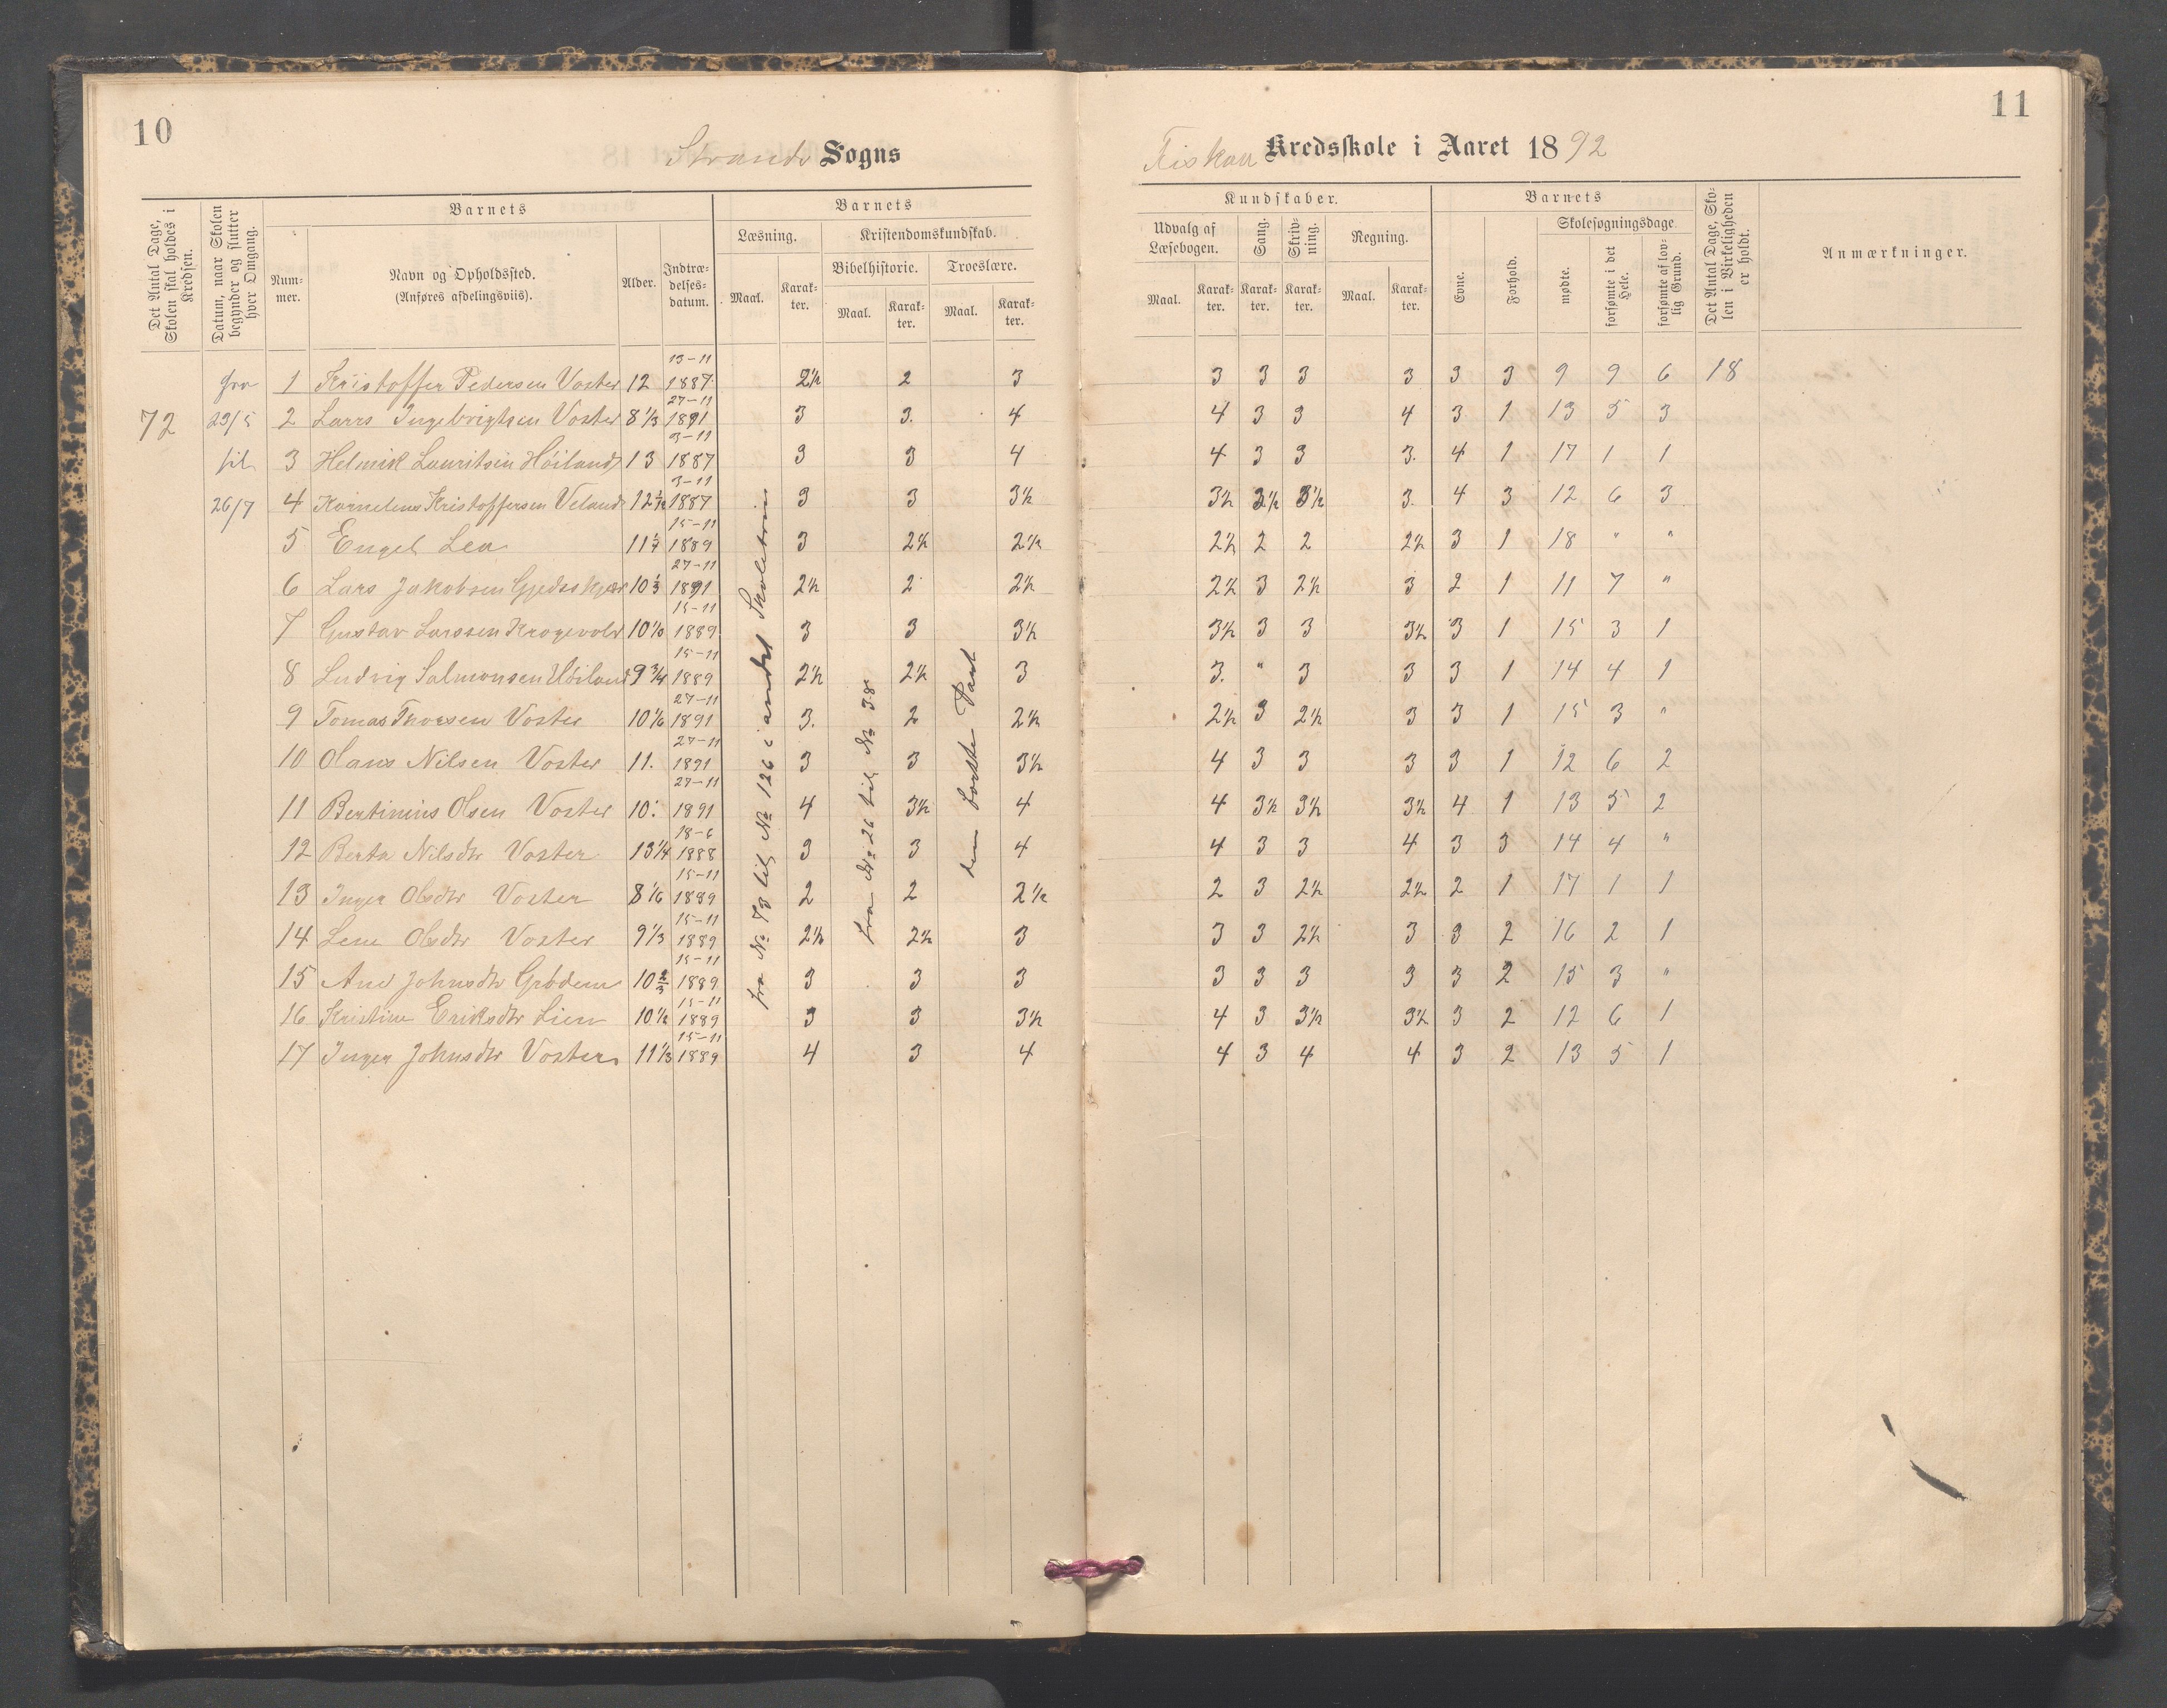 10
Strands Sogns
Det Antal Dage, Skolen skal holdes i Kredsen.
Datum, naar Skolen begynder og slutter hver Omgang.
Barnets
Barnets
Num-mer.
Navn og Opholdssted.
(Anføres afdelingsviis).
Alder.
Indtræ-delses-datum.
Læsning.
Kristendomskundskab.
Bibelhistorie.
Troeslære.
Maal.
Karak-ter.
Maal.
Karak-ter.
Maal.
Karak-ter.
fra 1 Kristoffer Pedersen Voster 12 13-11 1887 2½ 2 3
72 23/5 2 Lars Ingebrigtsen Voster 8⅓ 27-11 1891 3 3. 4
til 3 Helmik Lauritsen Höiland 13 3-11 1887 3 3 4
26/7 4 Kornelius Kristoffersen Veland 12½ 3-11 1887 3 3 3½
5 Engel Lea 11 15-11 1889 3 2½ 2½
6 Lars Jakobsen 10⅓ 27-11 1891 2½ 2 2½
7 Gustav Larssen Krogevold 10 15-11 1889 3 3 3½
8 Ludvig Salmonsen Höiland 9¾ 15-11 1889 2½ 2½ 3
9 Tomas Thorsen Voster 10⅙ 27-11 1891 3. 2 2½
10 Olaus Nilsen Voster 11. 27-11 1891 3 3 3½
11 Bertinius Olsen Voster 10. 27-11 1891 4 3½ 4
12 Berta Nilsdtr Voster 13¼ 18-6 1888 3 3 4
13 Inger Olsdtr Voster 8⅙ 15-11 1889 2 2 2½
14 Lene Olsdtr Voster 9⅓ 15-11 1889 2½ 2½ 3
15 Ane Johnsdtr Grödem 10⅔ 15-11 1889 3 3 3
16 Kristine Eriksdtr Lien 10½ 15-11 1889 3 3 3½
17 Inger Johnsdtr Voster 11⅓ 15-11 1889 4 3 4
fra No 73 til No 126 i andet Skoletrin
fra No 26 til No 38
den Part
11
Fiskaa Kredsskole i Aaret 1892
Kundskaber.
Barnets
Udvalg af Læsebogen.
Sang.
Skriv-ning.
Regning.
Evne.
Forhold.
Skolesøgningsdage.
Det Antal Dage, Sko-len i Virkeligheden er holdt.
Anmærkninger.
Maal.
Karak-ter.
Karak-ter.
Karak-ter.
Maal.
Karak-ter.
mødte.
forsømte i det Hele.
forsømte af lov-lig Grund.
3 3 3 3 3 3 9 9 6 18
4 3 3 4 3 1 13 5 3
4 3 3 3. 4 1 17 1 1
3½ 3½ 3½ 3. 4 3 12 6 3
2½ 2 2 2½ 3 1 18 " "
2½ 3 2½ 3 2 1 11 7 "
3½ 3 3 3½ 3 1 15 3 1
3. " 3 3 3 1 14 4 1
2½ 3 2½ 3 3 1 15 3 "
4 3 3 3 3 1 12 6 2
4 3½ 3½ 3½ 4 1 13 5 2
4 3 3 4 3 3 14 4 "
2 3 2½ 2½ 2 1 17 1 1
3 3 2½ 3 3 2 16 2 1
3 3 3 3 3 2 15 3 "
4 3 3½ 3½ 3 2 12 6 1
4 3 4 4 3 2 13 5 1